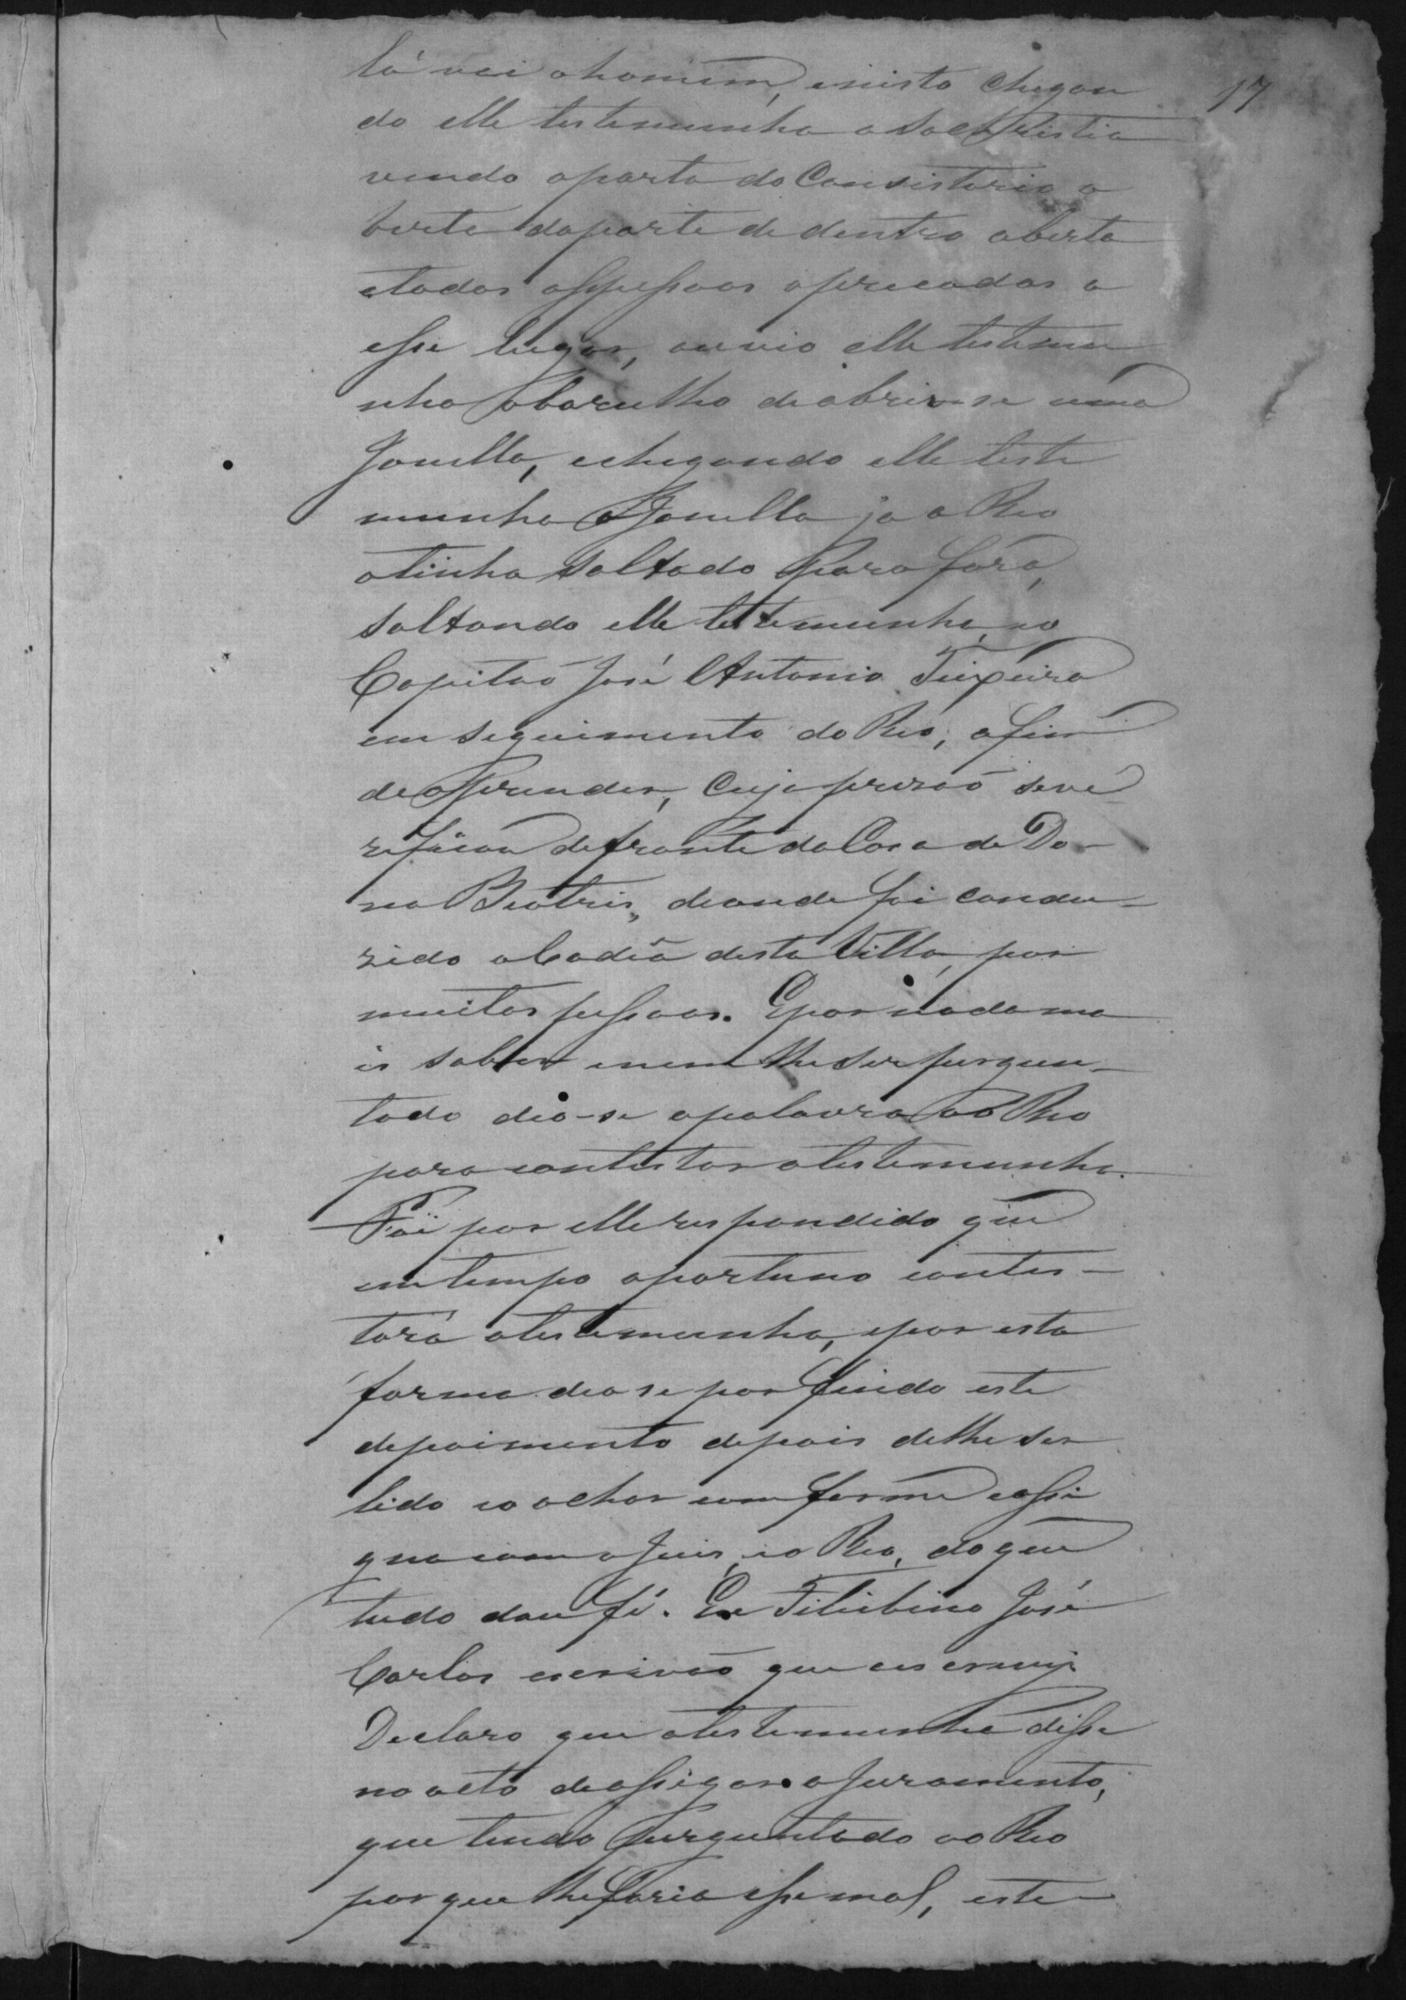 lá vai o homem, e nisto chegan
17
do elle testemunha a sachristia
vendo a porta do Consistorio a
berta da parte de dentro aberta
e todas as pessoas apinhadas a
esse lugar, ouvio elle testemu
nha o barulho de abrir-se uma
Janella, e chegando elle teste
munha a Janella já o Reo
a tinha saltado para fora,
saltando elle testemunha, e o
Capitaõ José Antonio Teixeira
em seguimento do Reo, afim
de o prender, cuja prizaõ se ve
reficou defronte da Casa de Do-
na Beatris, de onde foi condu-
zido a Cadêa desta Villa, por
muitas pessoas. E por nada ma
is saber e nem lhe ser pergun-
tado deo-se a palavra ao Reo
para contestar a testemunha.
Foi por elle respondido que
em tempo oportuno contes-
tará a testemunha, e por esta
forma deo se por findo este
depoimento depois de lhe ser
lido e o achar comforme e assi
gna com o Juis, e o Reo, do que
tudo dou fé. Eu Filisbino José
Carlos escrivaõ que escrevy
Declaro que a testemunha disse
no acto de assignar o juramento,
que tendo perguntado ao Reo
por que lhe faria esse mal, este